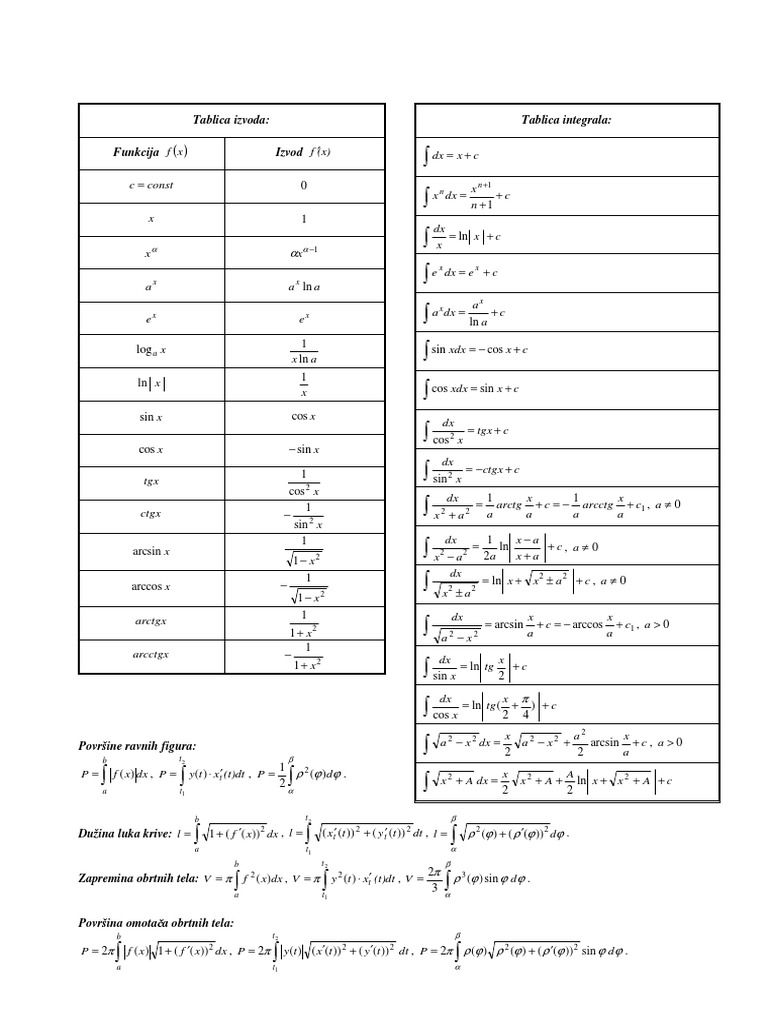 Tablica izvoda:
Funkcija f(x) Izvod f′(x)
c = const 0
x 1
x^α αx^(α−1)
a^x a^x ln a
e^x e^x
log_a x 1/(x ln a)
ln|x| 1/x
sin x cos x
cos x − sin x
tgx 1/(cos² x)
ctgx −1/(sin² x)
arcsin x 1/√(1−x²)
arccos x −1/√(1−x²)
arctgx 1/(1+x²)
arcctgx −1/(1+x²)
Tablica integrala:
∫dx = x + c
∫x^n dx = x^(n+1)/(n+1) + c
∫dx/x = ln|x| + c
∫e^x dx = e^x + c
∫a^x dx = a^x/(ln a) + c
∫sin xdx = − cos x + c
∫cos xdx = sin x + c
∫dx/(cos² x) = tgx + c
∫dx/(sin² x) = −ctgx + c
∫dx/(x² + a²) = 1/a arctg x/a + c = −1/a arcctg x/a + c₁, a ≠ 0
∫dx/(x² − a²) = 1/(2a) ln|(x−a)/(x+a)| + c, a ≠ 0
∫dx/√(x² ± a²) = ln|x + √(x² ± a²)| + c, a ≠ 0
∫dx/√(a² − x²) = arcsin x/a + c = − arccos x/a + c₁, a > 0
∫dx/(sin x) = ln|tg x/2| + c
∫dx/(cos x) = ln|tg(x/2 + π/4)| + c
∫√(a² − x²) dx = x/2 √(a² − x²) + a²/2 arcsin x/a + c, a > 0
∫√(x² + A) dx = x/2 √(x² + A) + A/2 ln|x + √(x² + A)| + c
Površine ravnih figura:
P = ∫_a^b |f(x)|dx, P = ∫_{t₁}^{t₂} y(t)·x′_t(t)dt, P = 1/2 ∫_α^β ρ²(φ)dφ.
Dužina luka krive: l = ∫_a^b √(1 + (f′(x))²) dx, l = ∫_{t₁}^{t₂} √((x′_t(t))² + (y′_t(t))²) dt, l = ∫_α^β √(ρ²(φ) + (ρ′(φ))²) dφ.
Zapremina obrtnih tela: V = π∫_a^b f²(x)dx, V = π∫_{t₁}^{t₂} y²(t)·x′_t(t)dt, V = 2π/3 ∫_α^β ρ³(φ) sin φ dφ.
Površina omotača obrtnih tela:
P = 2π∫_a^b |f(x)|√(1 + (f′(x))²) dx, P = 2π∫_{t₁}^{t₂} |y(t)|√((x′(t))² + (y′(t))²) dt, P = 2π∫_α^β ρ(φ)√(ρ²(φ) + (ρ′(φ))²) sin φ dφ.